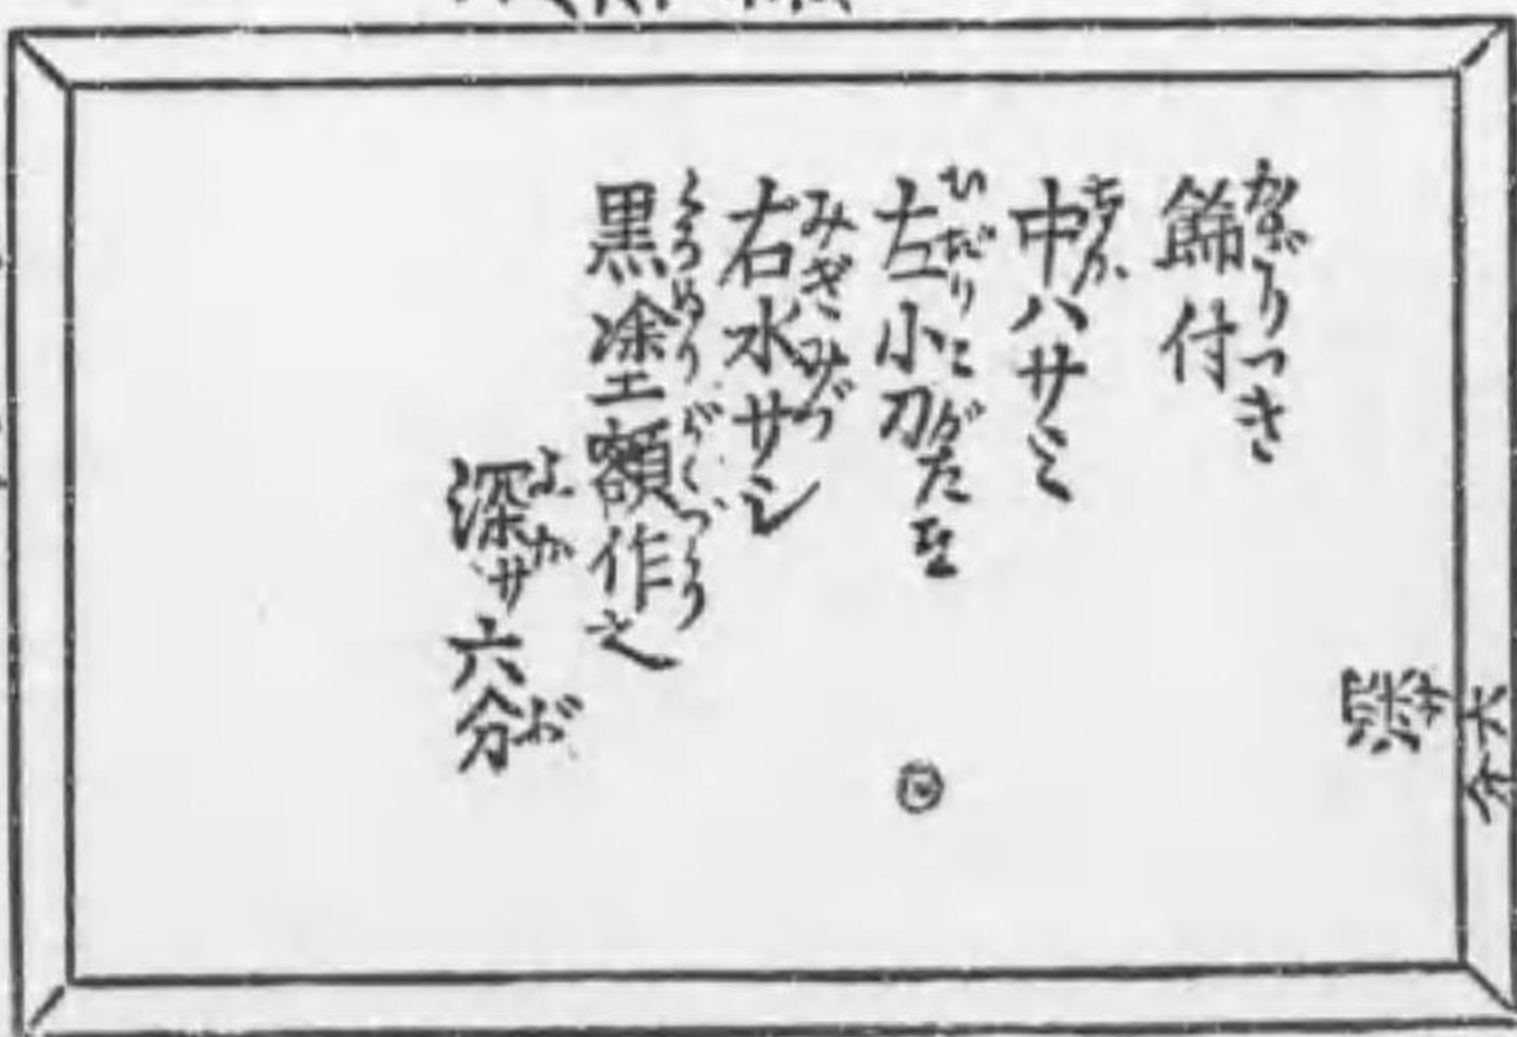 餝付
かざりつき
中ハサミ
なか
左小刀
ひだりこがたな
右水サシ
みぎみづ
黒塗額作之
くろぬりがくづくり
深サ六分
ふか ぶ
六分